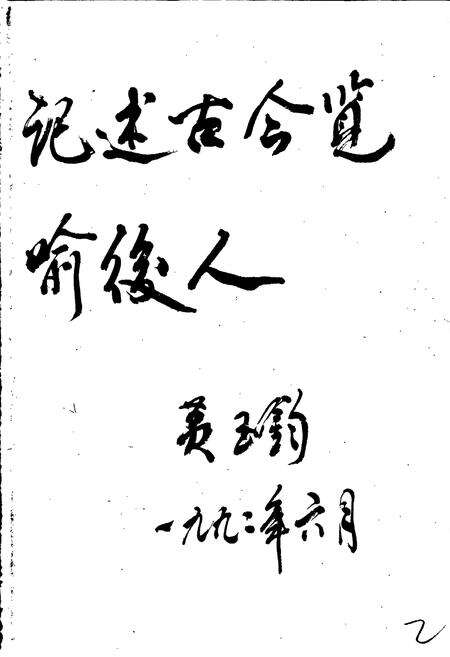 记述古今览
喻後人
黄玉鈞
一九九二年六月
2